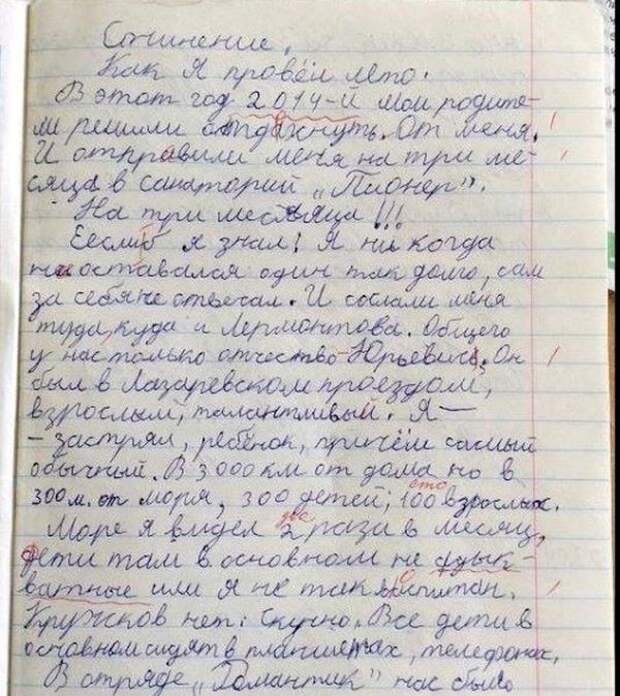 Сочинение.
Как Я провёл лето.
В этот год 2014-й мои родите-
ли решили отдахнуть. От меня.
И отправили меня на три ме-
сяца в санаторий „Пионер".
На три месяца!!!
Еслиб я знал! Я ни когда
ни оставался один так долго, сам
за себя не отвечал. И сослали меня
туда, куда и Лермонтова. Общего
у нас только отчество-Юрьевич. Он
был в Лазаревском проездом,
взрослый, талантливый. Я —
- застрял, ребёнок, причём самый
обычный. В 3000 км от дома но в
300 м. от моря, 300 детей, 100 взрослых.
сто
Море я видел 2 раза в месяц,
два
дети там в основном не
ватные или я не так воспитан.
Кружков нет. Скучно. Все дети в
основном сидят в планшетах, телефонах.
В отряде „Романтик" нас было